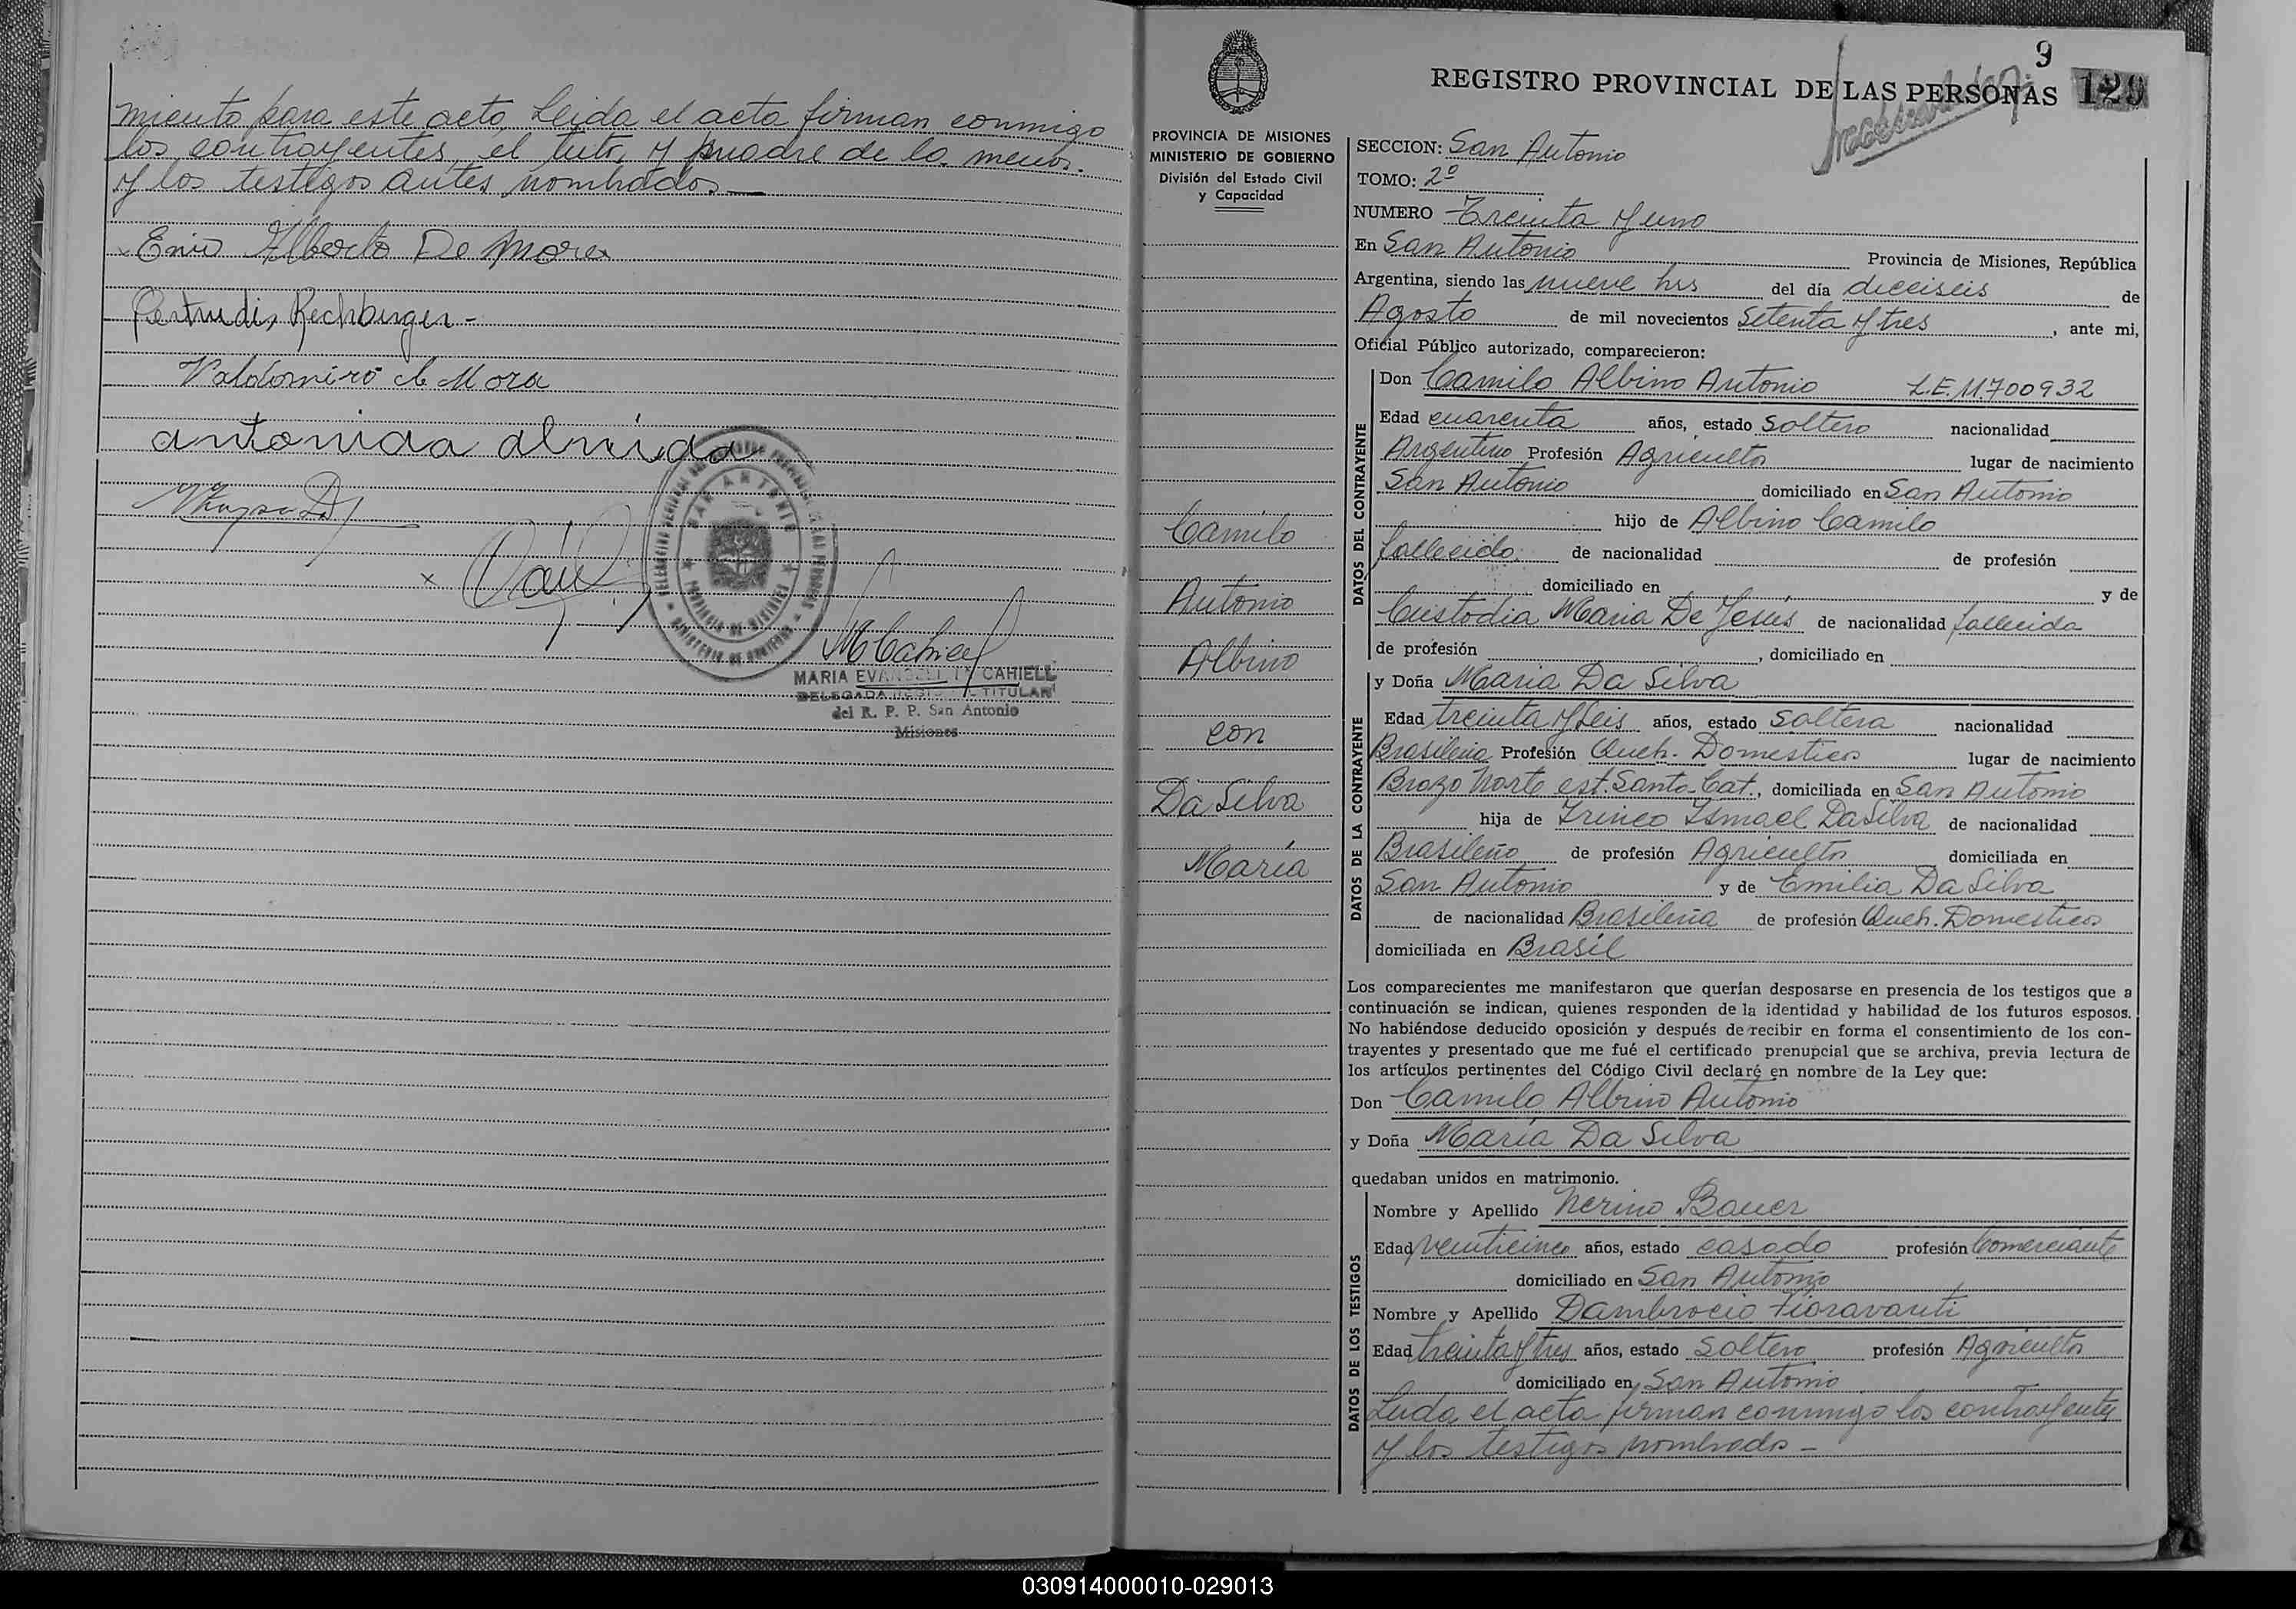 miento para este acto, Leida el acta firman conmigo
los contrayentes, el tutor y madre de la menor.
y los testigos antes nombrados
Alberto De Mora
Gertrudis Rechberger -
Valdomiro de Mora
antonida almida
SAN ANTONIO
PROVINCIA DE MISIONES
MINISTERIO DE GOBIERNO
MCahiell
MARIA CAHIELL
DELEGADA TITULAR
del R. P. P. San Antonio
Misiones
PROVINCIA DE MISIONES
MINISTERIO DE GOBIERNO
División del Estado Civil
y Capacidad
Camilo
Antonio
Albino
con
Da Silva
María
9
REGISTRO PROVINCIAL DE LAS PERSONAS 129
SECCION: San Antonio
TOMO: 2º
NUMERO Treinta y uno
En San Antonio Provincia de Misiones, República
Argentina, siendo las nueve hrs del día dieciseis de
Agosto de mil novecientos Setenta y tres, ante mi,
Oficial Público autorizado, comparecieron:
DATOS DEL CONTRAYENTE
Don Camilo Albino Antonio L.E. 11.700932
Edad cuarenta años, estado Soltero nacionalidad
Argentino Profesión Agricultor lugar de nacimiento
San Antonio domiciliado en San Antonio
hijo de Albino Camilo
fallecido. de nacionalidad de profesión
domiciliado en y de
Custodia Maria De Jesús de nacionalidad fallecida
de profesión , domiciliado en
DATOS DE LA CONTRAYENTE
y Doña Maria Da Silva
Edad treinta y seis años, estado soltera nacionalidad
Brasileña Profesión Queh. Domesticos lugar de nacimiento
Brazo Norte est. Santa Cat., domiciliada en San Antonio
hija de Irineo Ismael DaSilva de nacionalidad
Brasileño de profesión Agricultor domiciliada en
San Antonio y de Emilia Da Silva
de nacionalidad Brasileña de profesión Queh. Domesticos
domiciliada en Brasil
Los comparecientes me manifestaron que querían desposarse en presencia de los testigos que a
continuación se indican, quienes responden de la identidad y habilidad de los futuros esposos.
No habiéndose deducido oposición y después de recibir en forma el consentimiento de los con-
trayentes y presentado que me fué el certificado prenupcial que se archiva, previa lectura de
los artículos pertinentes del Código Civil declaré en nombre de la Ley que:
Don Camilo Albino Antonio
y Doña María Da Silva
quedaban unidos en matrimonio.
DATOS DE LOS TESTIGOS
Nombre y Apellido Nerino Bauer
Edad veinticinco años, estado casado profesión Comerciante
domiciliado en San Antonio
Nombre y Apellido Dambrocio Fioravanti
Edad treinta y tres años, estado soltero profesión Agricultor
domiciliado en San Antonio
Leida el acta firman conmigo los contrayentes
y los testigos nombrados -
030914000010-029013